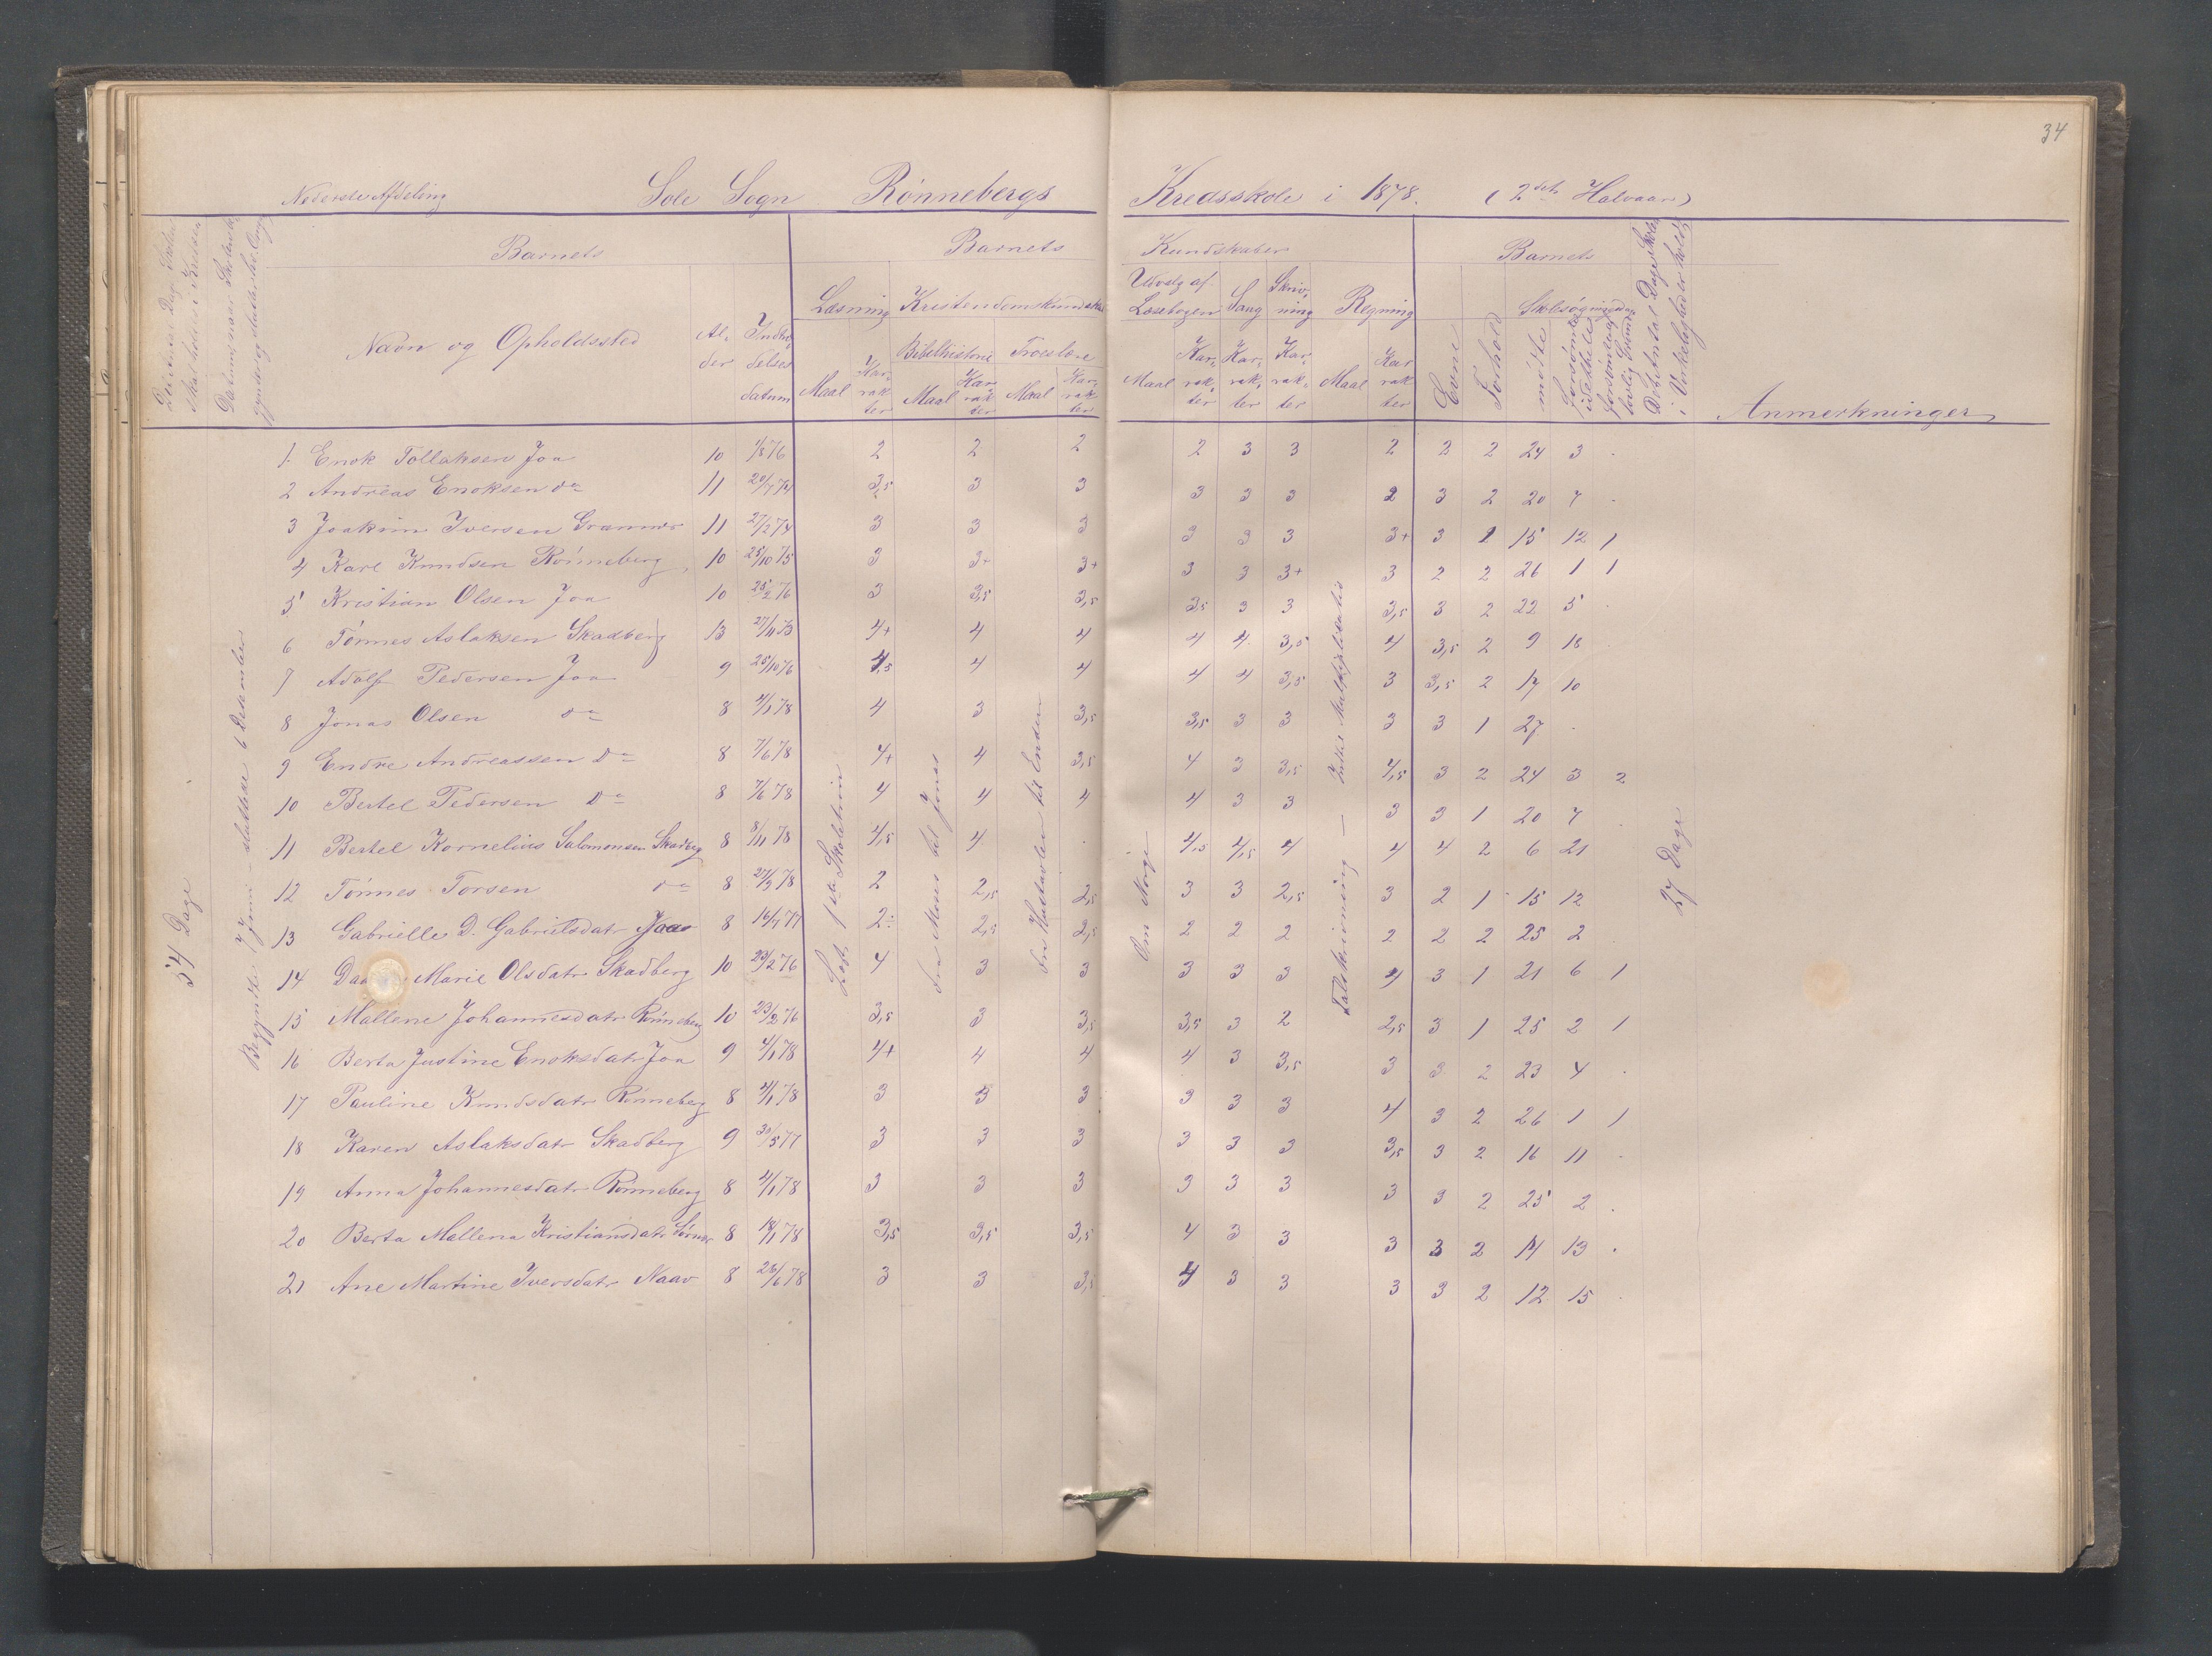 34
Nederste Afdeling Sole Sogn Rønnebergs Kredsskole i 1878. (2det Halvaar)
Barnets Barnets Kundskaber Barnets
Navn og Opholdssted Alder Indtrædelsesdatum Læsning Kristendomskundskab Udvalg af Læsebogen Sang Skrivning Regning Evne Forhold Skolesøgning Anmerkninger
Bibelhistorie Troeslære
Maal Karrakter Maal Karrakter Maal Karrakter Maal Karrakter Karrakter Karrakter Maal Karrakter mødte
54 Dage
Begyndte 7 Juni – sluttede 6 December
1 Enok Tollaksen Joa 10 1/8 76 2 2 2 2 3 3 2 2 2 24 3 .
2 Andreas Enoksen do 11 20/7 74 3,5 3 3 3 3 3 2 3 2 20 7 .
3 Joakim Iversen 11 27/2 74 3 3 3 3 3 3 3+ 3 2 15 12 1
4 Karl Knudsen Rønneberg 10 25/10 75 3 3+ 3+ 3 3 3+ 3 2 2 26 1 1
5 Kristian Olsen Joa 10 25/2 76 3 3,5 3,5 3,5 3 3 3,5 3 2 22 5 .
6 Tønnes Aslaksen Skadberg 13 27/11 73 4+ 4 4 4 4 3,5 4 3,5 2 9 18 .
7 Adolf Pedersen Joa 9 25/10 76 4,5 4 4 4 4 3,5 3 3,5 2 17 10
8 Jonas Olsen do 8 4/1 78 4 3 3,5 3,5 3 3 3 3 1 27 .
9 Endre Andreassen Do 8 7/6 78 4+ 4 3,5 4 3 3,5 4,5 3 2 24 3 2
10 Bertel Pedersen Do 8 7/6 78 4 4 4 4 3 3 3 3 1 20 7
11 Bertel Kornelius Salomonsen Skadberg 8 8/11 78 4,5 4 . 4,5 4,5 4 4 4 2 6 21
12 Tønnes Torsen do 8 27/9 78 2 2,5 2,5 3 3 2,5 3 2 1 15 12
13 Gabrielle D. Gabrielsdatr Joa 8 16/7 77 2÷ 2,5 2,5 2 2 2 2 2 2 25 2
14 Marie Olsdatr Skadberg 10 23/2 76 4 3 3 3 3 3 4 3 1 21 6 1
15 Mallene Johannesdatr Rønneberg 10 23/2 76 3,5 3 3,5 3,5 3 2 2,5 3 1 25 2 1
16 Berta Justine Enoksdatr Joa 9 4/1 78 4+ 4 4 4 3 3,5 3 3 2 23 4 .
17 Pauline Knudsdatr Rønneberg 8 4/1 78 3 3 3 3 3 3 4 3 2 26 1 1
18 Karen Aslaksdatr Skadberg 9 30/5 77 3 3 3 3 3 3 3,5 3 2 16 11 .
19 Anna Johannesdatr Rønneberg 8 4/1 78 3 3 3 3 3 3 3 3 2 25 2 .
20 Berta Mallena Kristiansdatr 8 18/1 78 3,5 3,5 3,5 4 3 3 3 3 2 14 13 .
21 Ane Martine Iversdatr Naav 8 26/6 78 3 3 3,5 4 3 3 3 3 2 12 15 .
Læst 1ste Skoletrin
fra Moses til Jonas
fra Hustavlen til Enden
Om Norge
Talskrivning –
27 Dage